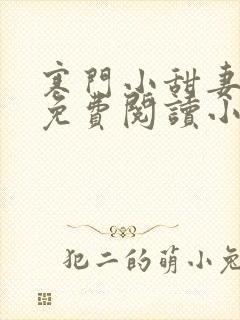 寒門小甜妻
免費閱讀小
犯二的萌小兔